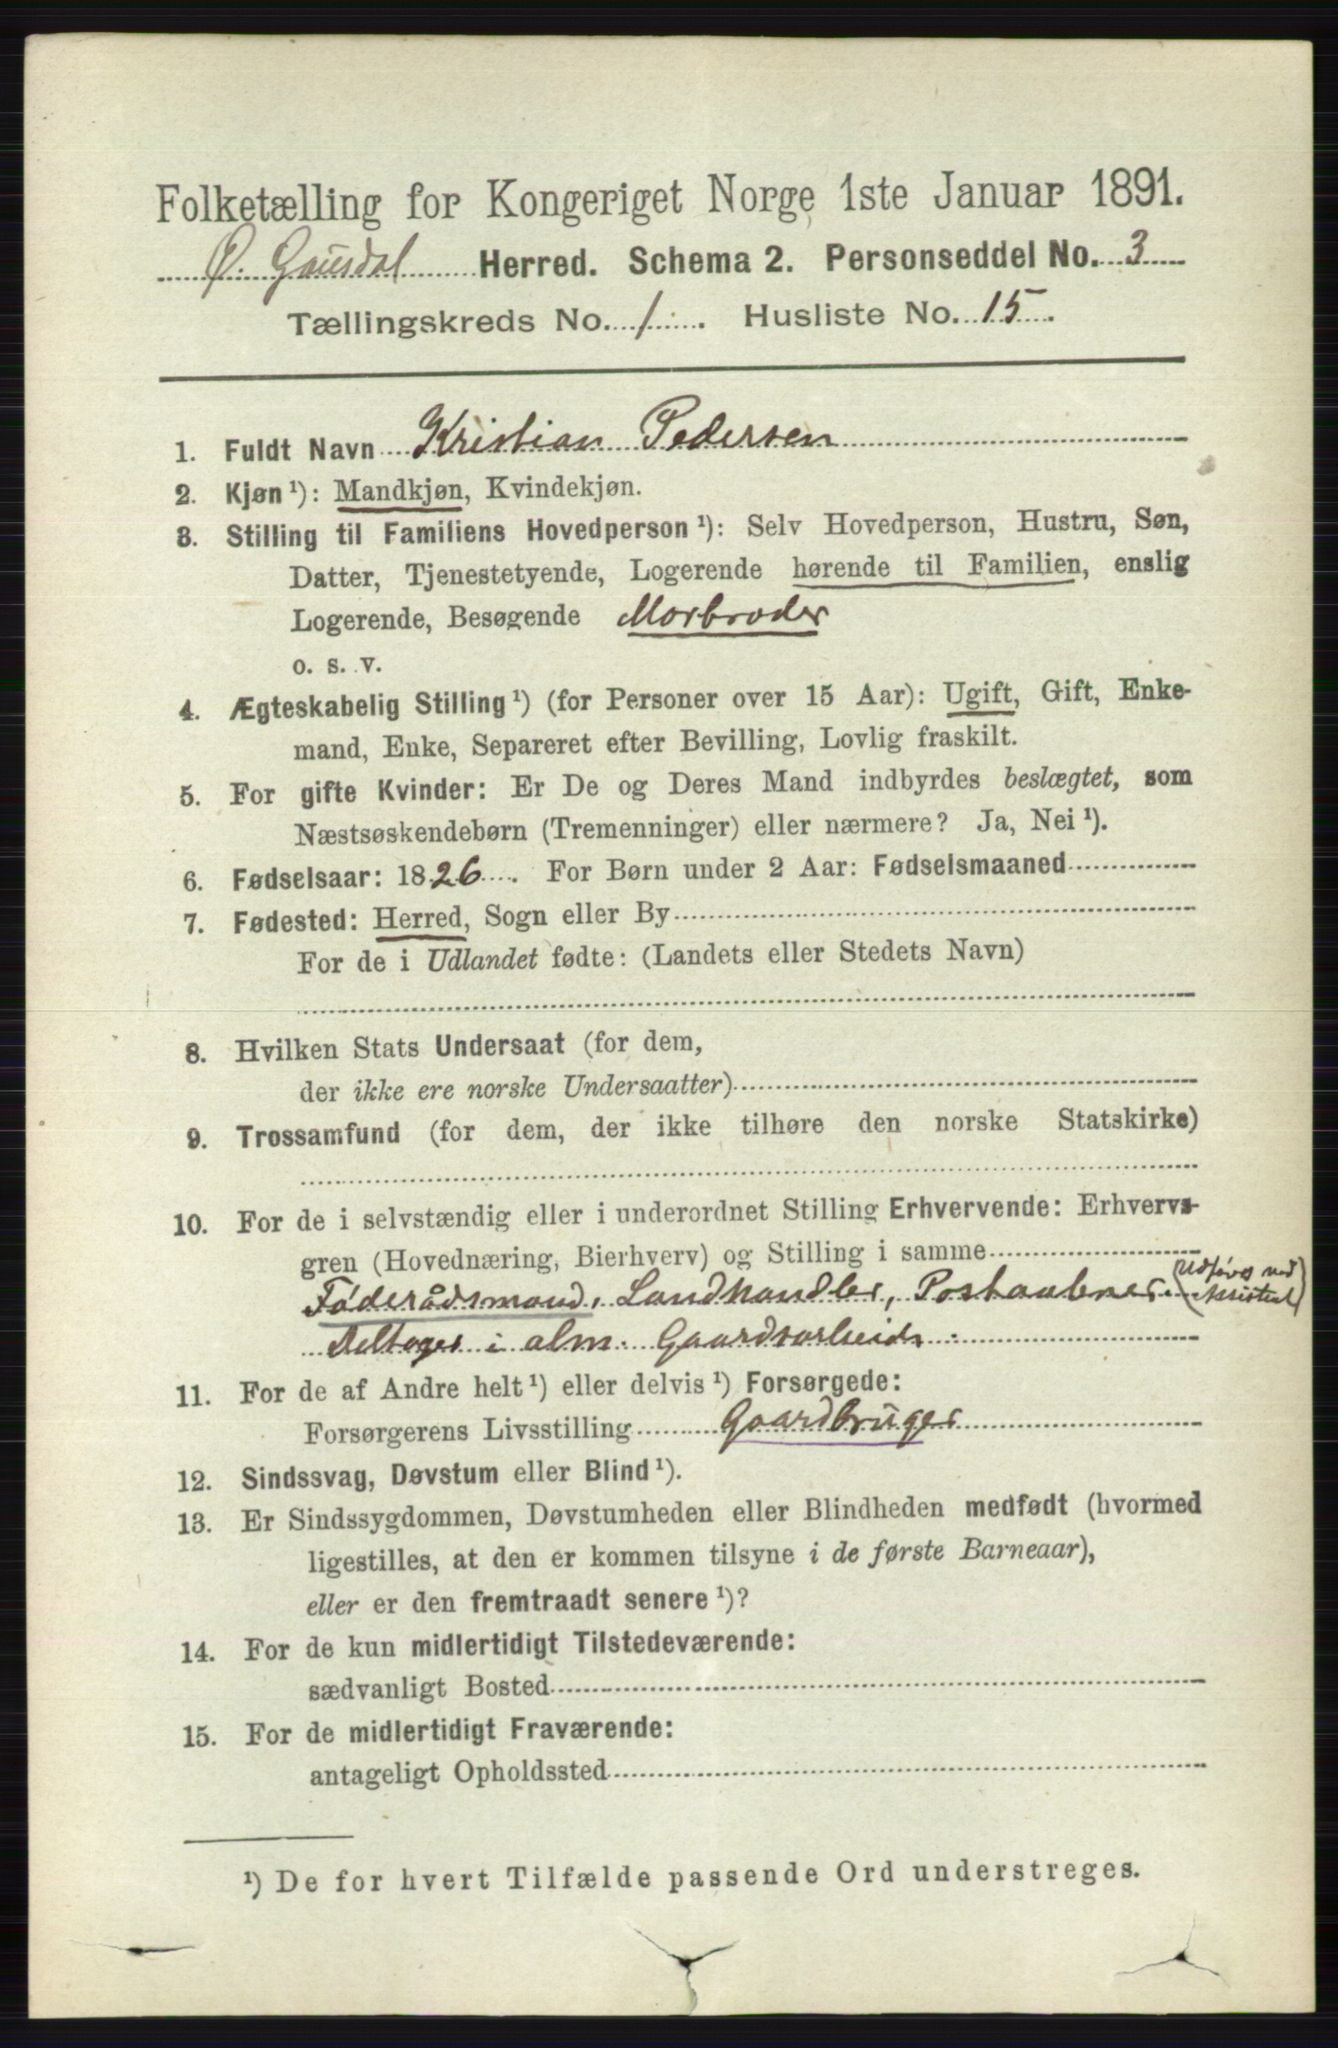 Folketælling for Kongeriget Norge 1ste Januar 1891.
Ø. Gausdal Herred. Schema 2. Personseddel No. 3
Tællingskreds No. 1. Husliste No. 15.
1. Fuldt Navn Kristian Pedersen
2. Kjøn ¹): Mandkjøn, Kvindekjøn.
3. Stilling til Familiens Hovedperson ¹): Selv Hovedperson, Hustru, Søn,
Datter, Tjenestetyende, Logerende hørende til Familien, enslig
Logerende, Besøgende Morbroder
o. s. v.
4. Ægteskabelig Stilling ¹) (for Personer over 15 Aar): Ugift, Gift, Enke-
mand, Enke, Separeret efter Bevilling, Lovlig fraskilt.
5. For gifte Kvinder: Er De og Deres Mand indbyrdes beslægtet, som
Næstsøskendebørn (Tremenninger) eller nærmere? Ja, Nei ¹).
6. Fødselsaar: 1826. For Børn under 2 Aar: Fødselsmaaned
7. Fødested: Herred, Sogn eller By
For de i Udlandet fødte: (Landets eller Stedets Navn)
8. Hvilken Stats Undersaat (for dem,
der ikke ere norske Undersaatter)
9. Trossamfund (for dem, der ikke tilhøre den norske Statskirke)
10. For de i selvstændig eller i underordnet Stilling Erhvervende: Erhvervs-
gren (Hovednæring, Bierhverv) og Stilling i samme
Føderådsmand, Landhandler, Postaabner. (Udføres ved
Deltager i alm. Gaardsarbeide.
11. For de af Andre helt ¹) eller delvis ¹) Forsørgede:
Forsørgerens Livsstilling Gaardbruger
12. Sindssvag, Døvstum eller Blind ¹).
13. Er Sindssygdommen, Døvstumheden eller Blindheden medfødt (hvormed
ligestilles, at den er kommen tilsyne i de første Barneaar),
eller er den fremtraadt senere ¹)?
14. For de kun midlertidigt Tilstedeværende:
sædvanligt Bosted
15. For de midlertidigt Fraværende:
antageligt Opholdssted
¹) De for hvert Tilfælde passende Ord understreges.